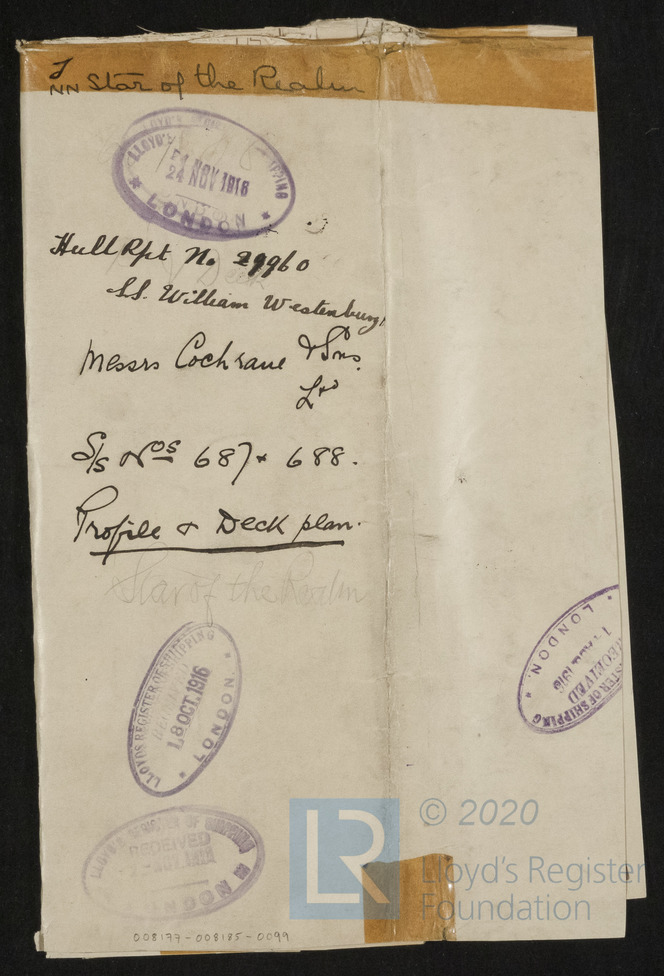 J
NN Star of the Realm
LLOYD'S
SHIPPING
24 NOV 1916
LONDON
Hull Rpt No. 29960
SS. William Westenburgh
Messrs Cochrane & Sons
Ltd
S/S Nos 687 & 688.
Profile & Deck plan.
Star of the Realm
LLOYDS REGISTER OF SHIPPING
18 OCT. 1916
LONDON
REGISTER OF SHIPPING
RECEIVED
1916
LONDON.
LLOYD'S REGISTER OF SHIPPING
RECEIVED
LONDON
LR
© 2020
Lloyd's Register
Foundation
008177-008185-0099